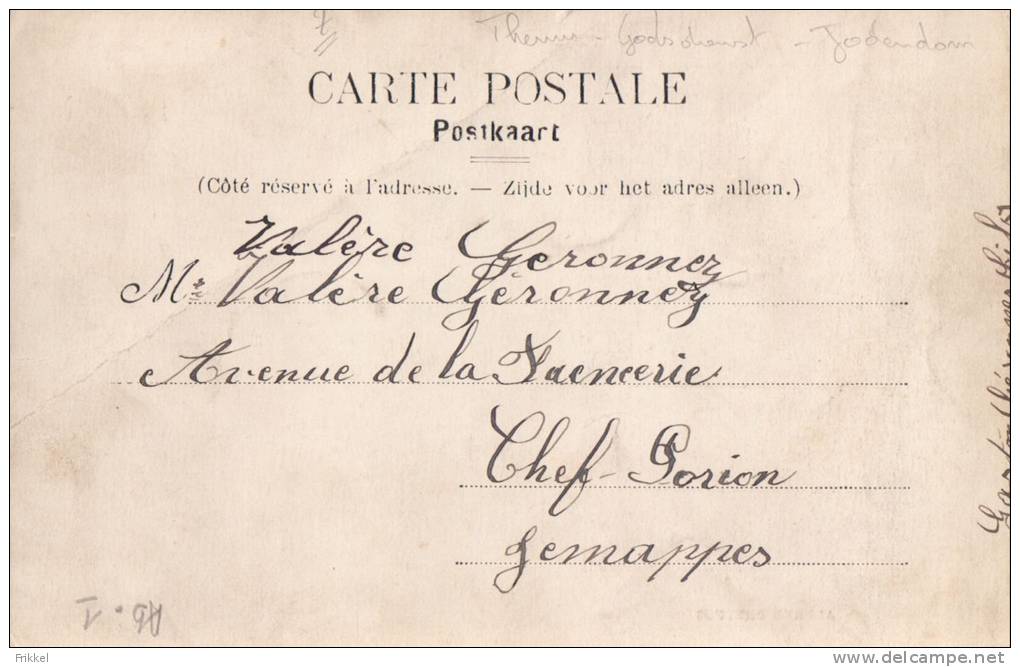 Thema - Godsdienst - Jodendom
CARTE POSTALE
Postkaart
(Côté réservé à l'adresse. — Zijde voor het adres alleen.)
Valère Géronnez
Mr Valère Géronnez
Avenue de la Faencerie
Chef-Porion
Jemappes
Gaston
Ab. I
Frikkel
www.delcampe.net